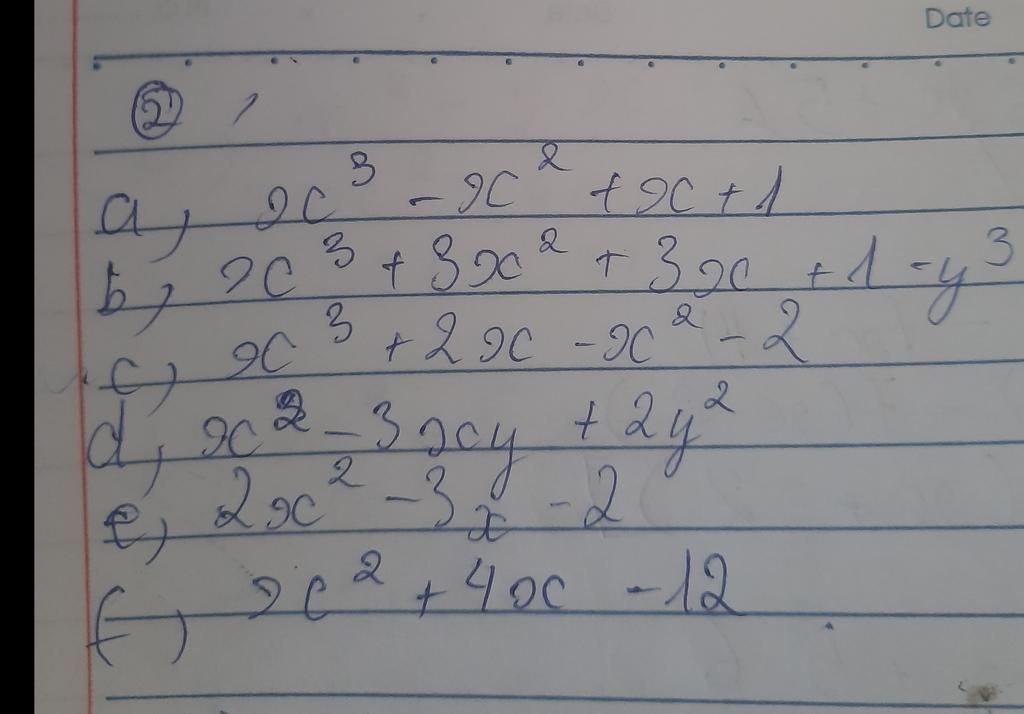 Date
② ,
a, x³ - x² + x + 1
b, x³ + 3x² + 3x + 1 - y³
c, x³ + 2x - x² - 2
d, x² - 3xy + 2y²
e, 2x² - 3x - 2
f, x² + 4x - 12